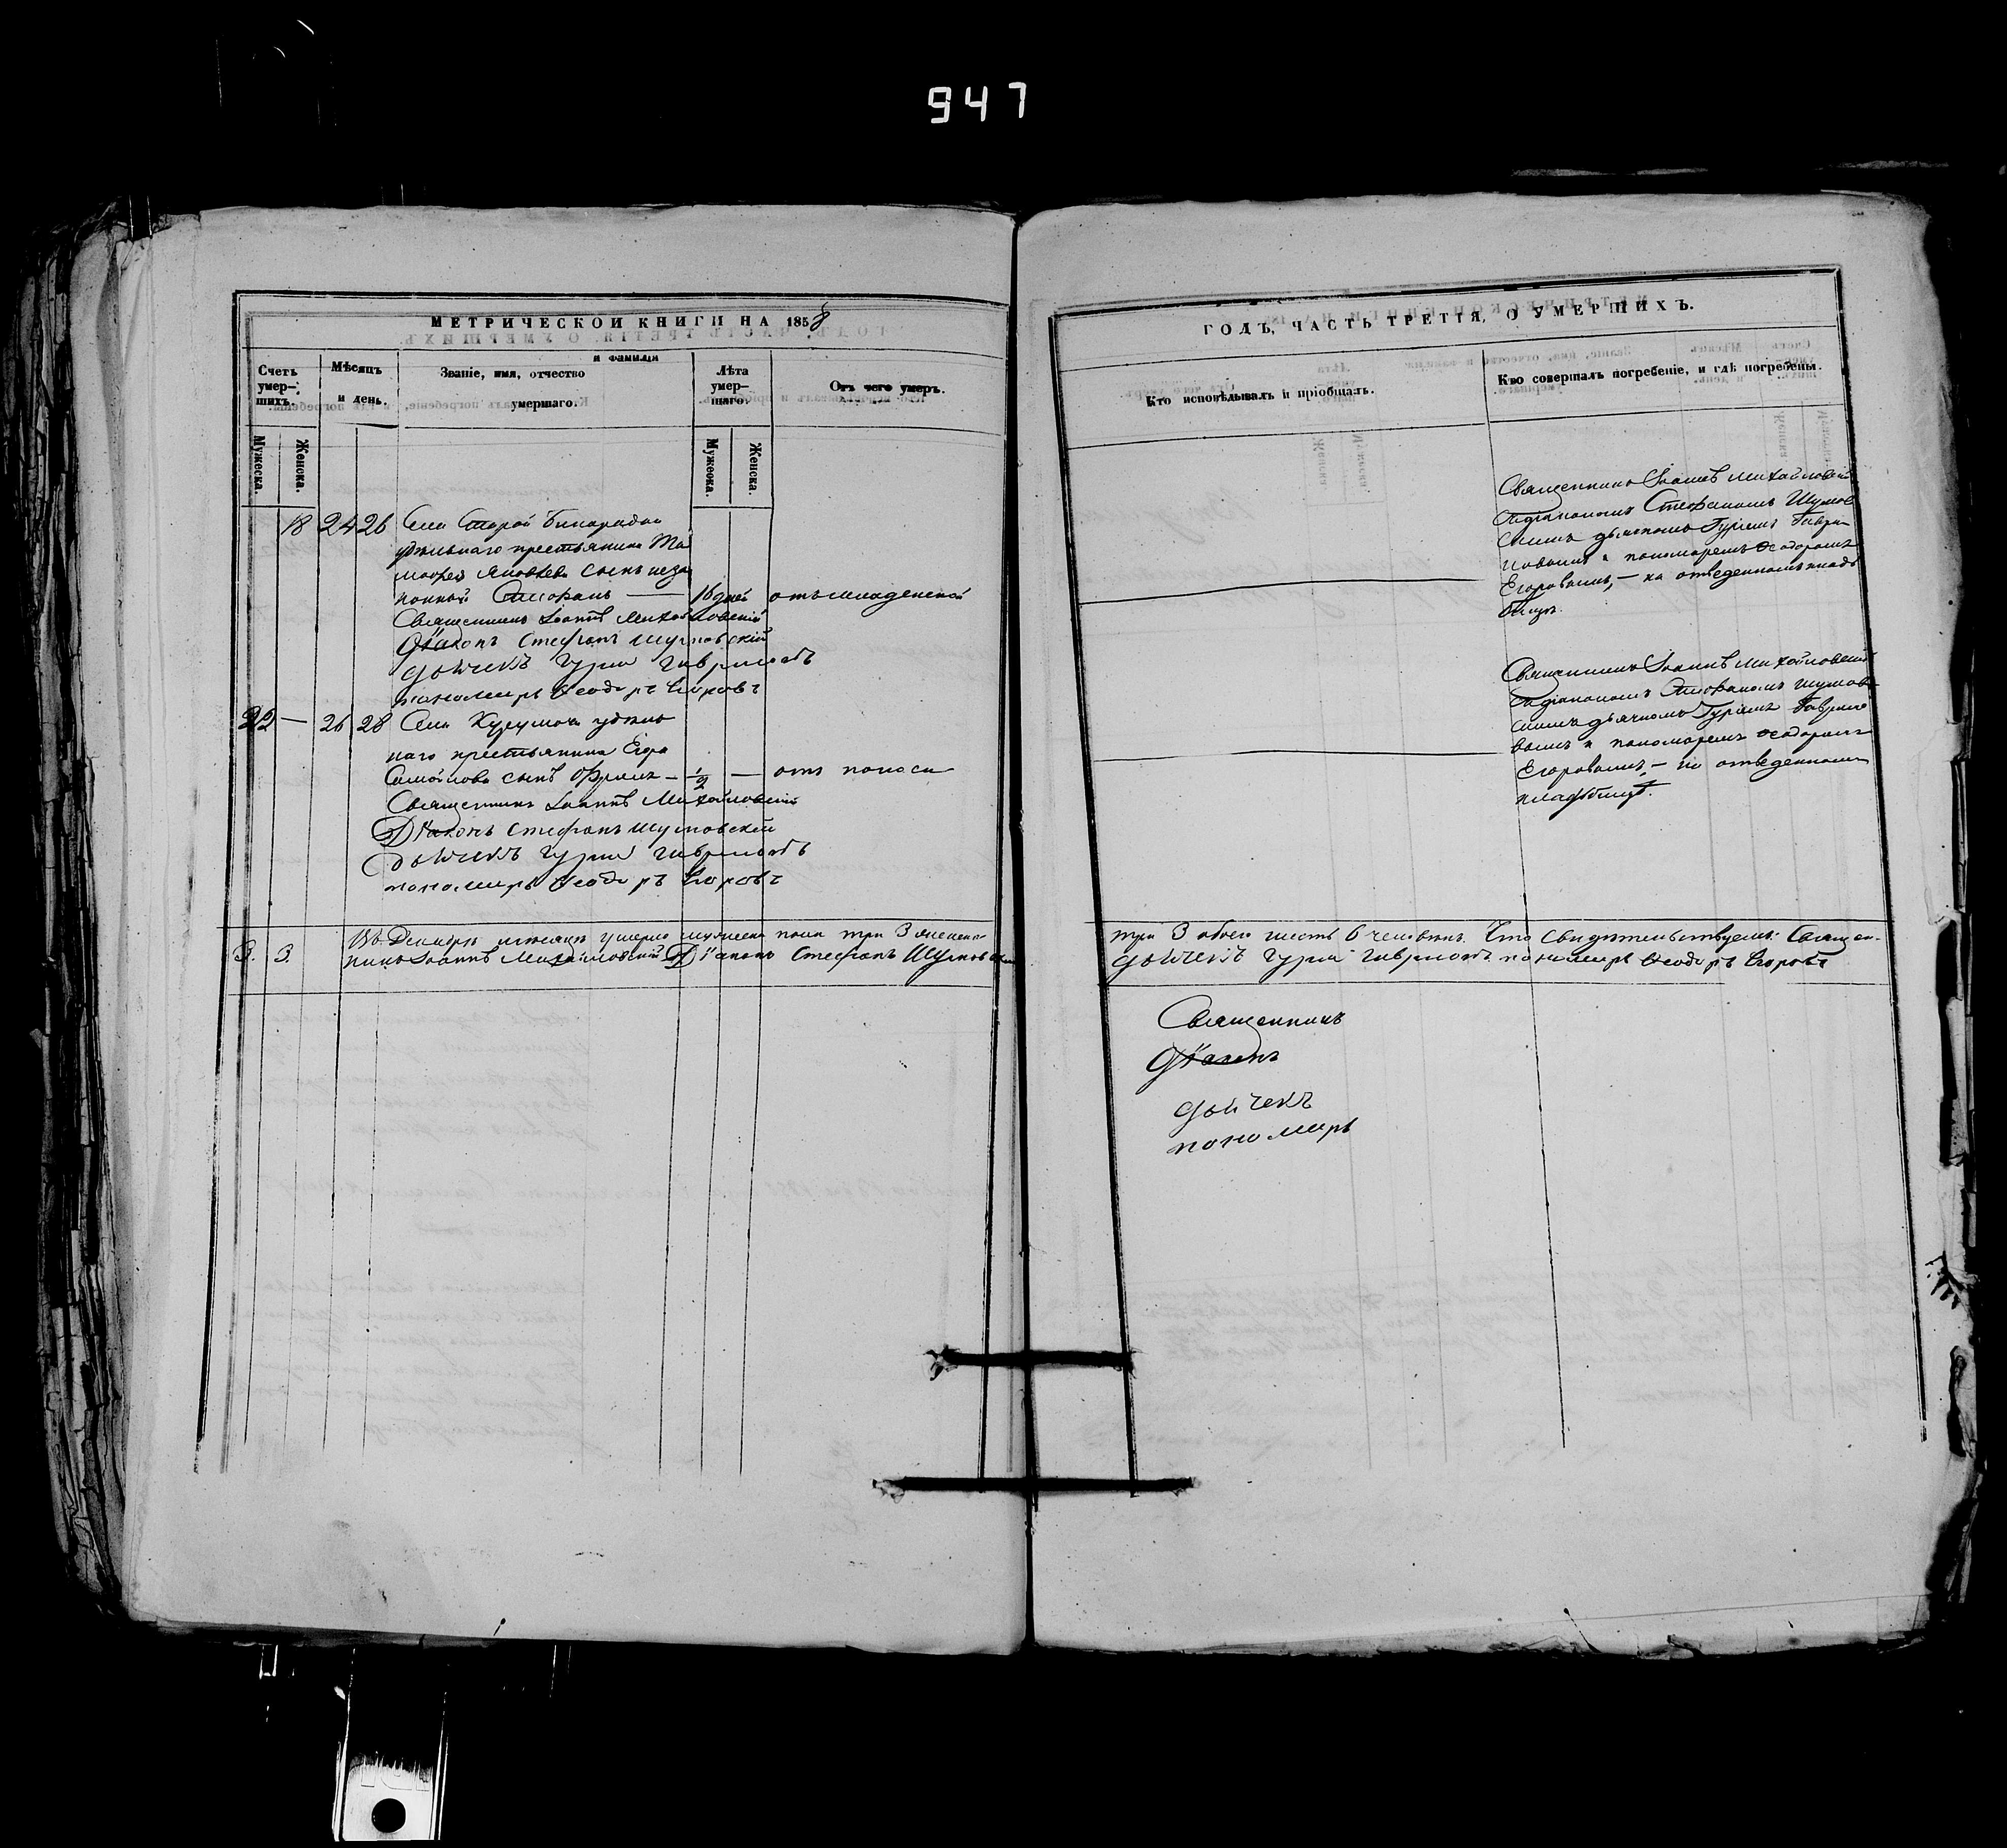 947
МЕТРИЧЕСКОЙ КНИГИ НА 1858
Счетъ умер-шихъ.
Мѣсяцъ и день.
и фамилія
Званіе, имя, отчество умершаго.
Лѣта умер-шаго.
Отъ чего умеръ.
Мужеска.
Женска.
Мужеска.
Женска.
18 24 26 Села Старой
удѣльнаго крестьянина
Яковлева сынъ
16 дней отъ младенской
Священникъ Іоаннъ Михайловскій
Діаконъ Стефанъ Шумовскій
дьячекъ Гурій Гавриловъ
пономарь Ѳеодоръ Егоровъ
22 — 26 28 Села удѣль
наго крестьянина
сынъ — 1/2 — отъ поноса
Священникъ Іоаннъ Михайловскій
Діаконъ Стефанъ Шумовскій
дьячекъ Гурій Гавриловъ
пономарь Ѳеодоръ Егоровъ
3. 3. Въ Декабрѣ мѣсяцѣ умерло мужеска пола три 3 женска
никъ Іоаннъ Михайловскій Діаконъ Стефанъ Шумовскій
ГОДЪ, ЧАСТЬ ТРЕТІЯ, О УМЕРШИХЪ.
Кто исповѣдывалъ и пріобщалъ.
Кто совершалъ погребеніе, и гдѣ погребены.
Священникъ Іоаннъ Михайловскій
съ діакономъ Стефаномъ Шумов
скимъ дьячкомъ Гуріемъ Гаври
ловымъ и пономаремъ Ѳеодоромъ
Егоровымъ, — на отведенномъ клад
бищѣ.
Священникъ Іоаннъ Михайловскій
съ діакономъ Стефаномъ Шумов
скимъ дьячкомъ Гуріемъ Гаврило
вымъ и пономаремъ Ѳеодоромъ
Егоровымъ, — на отведенномъ
кладбищѣ.
три 3 обоего шесть 6 человѣкъ. Что свидѣтельствуемъ: Священ-
дьячекъ Гурій Гавриловъ пономарь Ѳеодоръ Егоровъ
Священникъ
Діаконъ
дьячекъ
пономарь